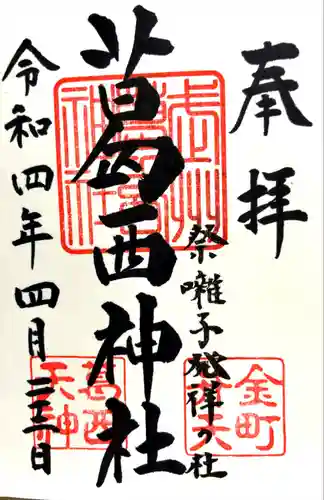 奉拝
祭囃子発祥の社
葛西神社
令和四年四月二三日
金町
葛西
天神